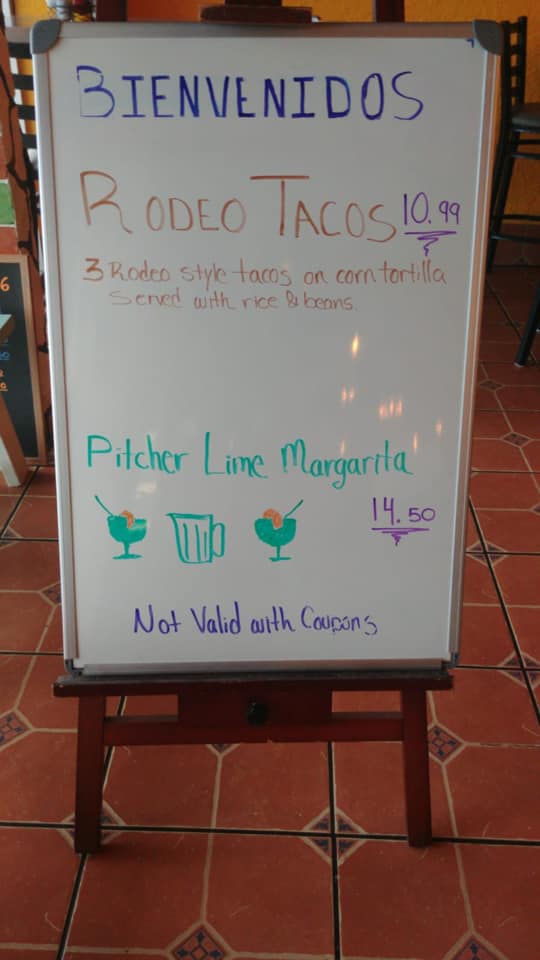 BIENVENIDOS
RODEO TACOS 10.99
3 Rodeo style tacos on corn tortilla
Served with rice & beans.
Pitcher Lime Margarita
14.50
Not Valid with Coupons
6